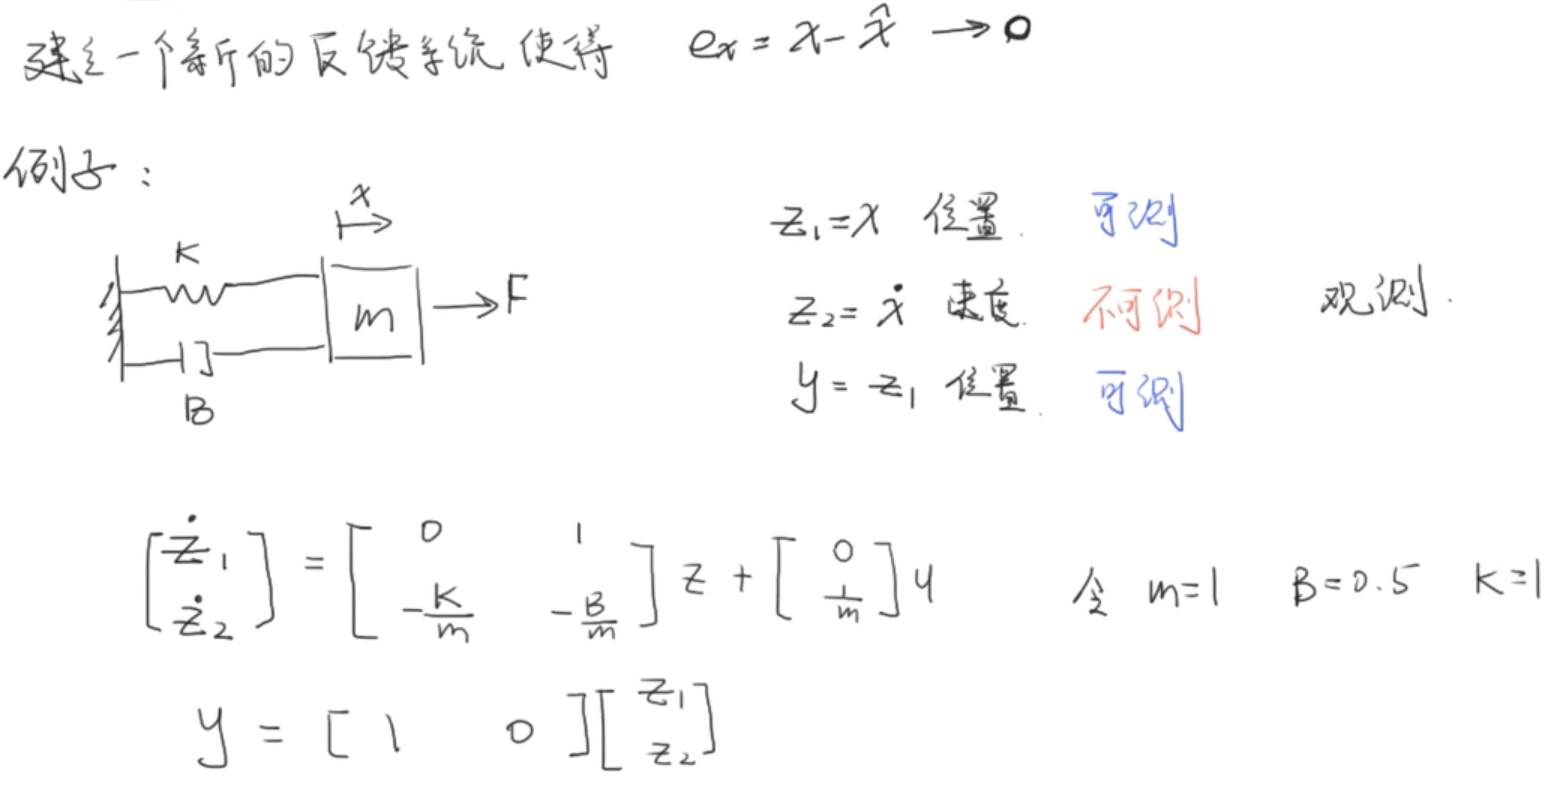 建立一个新的反馈系统 使得 eₓ = x - x̂ → 0
例子：
x
K
m
→ F
B
z₁ = x 位置. 可测
z₂ = ẋ 速度. 不可测 观测.
y = z₁ 位置. 可测
[ż₁ ; ż₂] = [0 1 ; -K/m -B/m] z + [0 ; 1/m] u 令 m=1 B=0.5 K=1
y = [1 0][z₁ ; z₂]